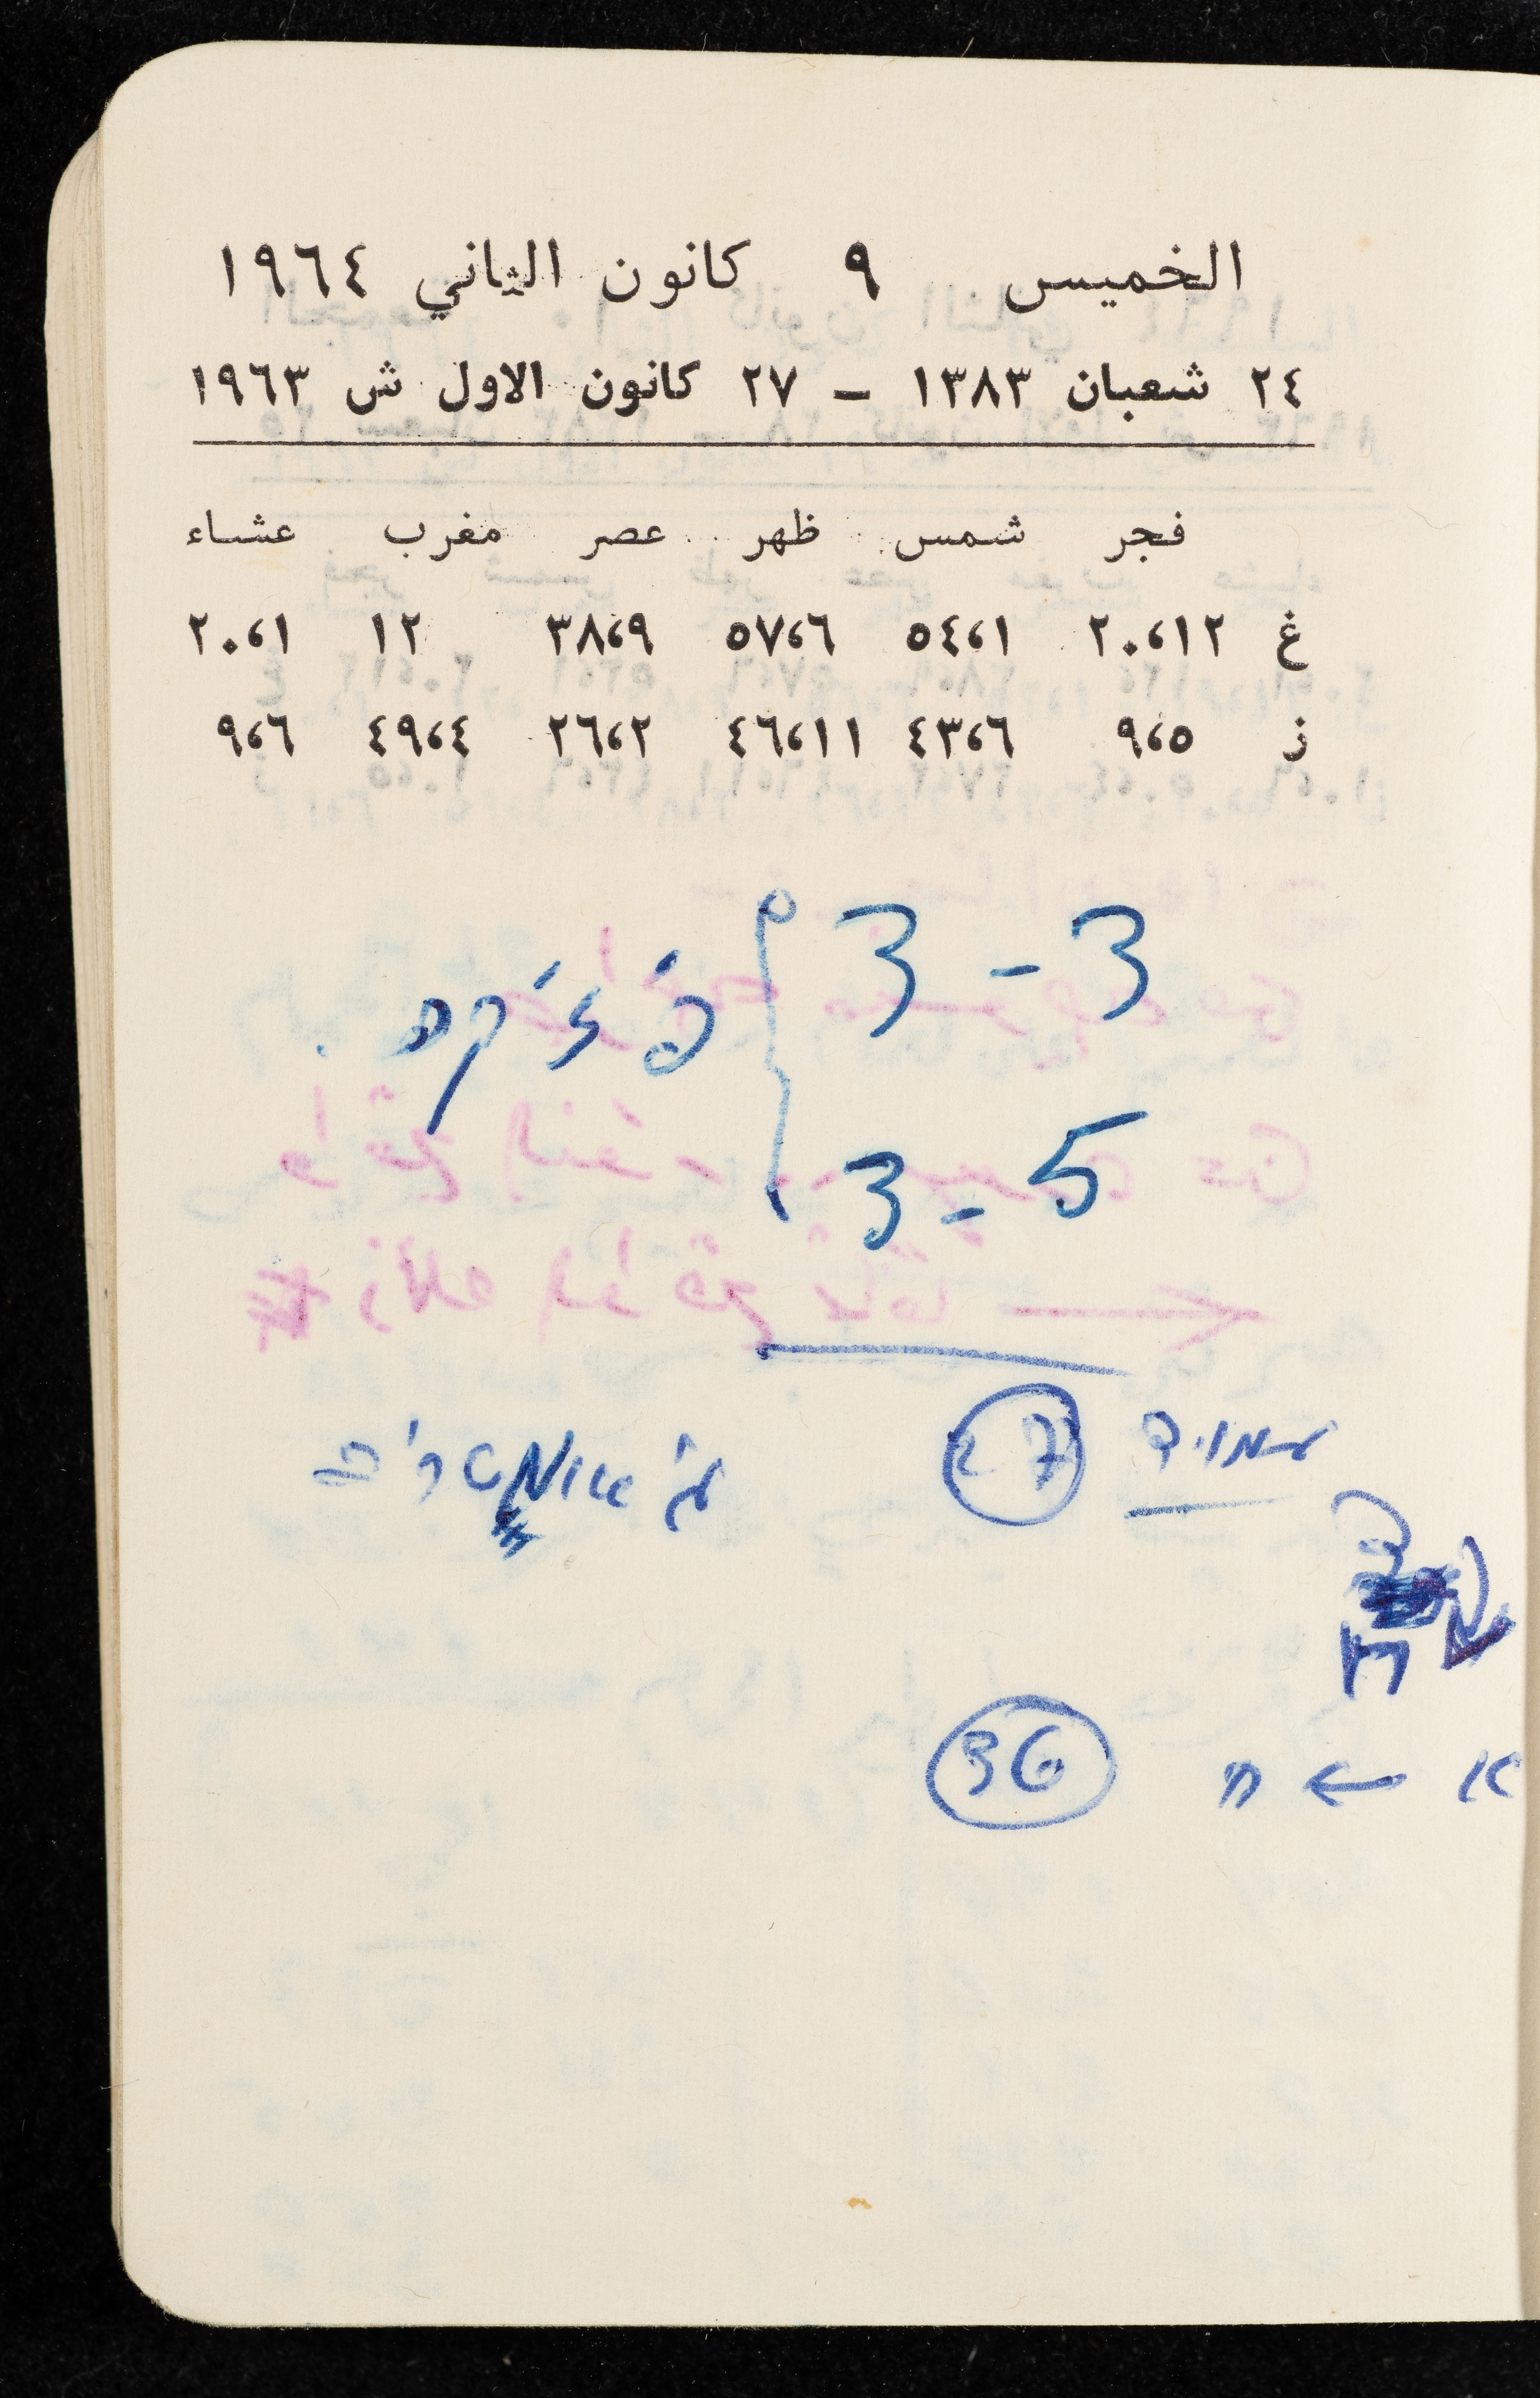 الخميس ٩ كانون الثاني ١٩٦٤
٢٤ شعبان ١٣٨٣ – ٢٧ كانون الاول ش ١٩٦٣
فجر شمس ظهر عصر مغرب عشاء
غ ٢٠،١٢ ٥٤،١ ٥٧،٦ ٣٨،٩ ١٢ ٢٠،١
ز ٩،٥ ٤٣،٦ ٤٦،١١ ٢٦،٢ ٤٩،٤ ٩،٦
3 - 3
פיזיקה
3 - 5
27
א ← ח 36